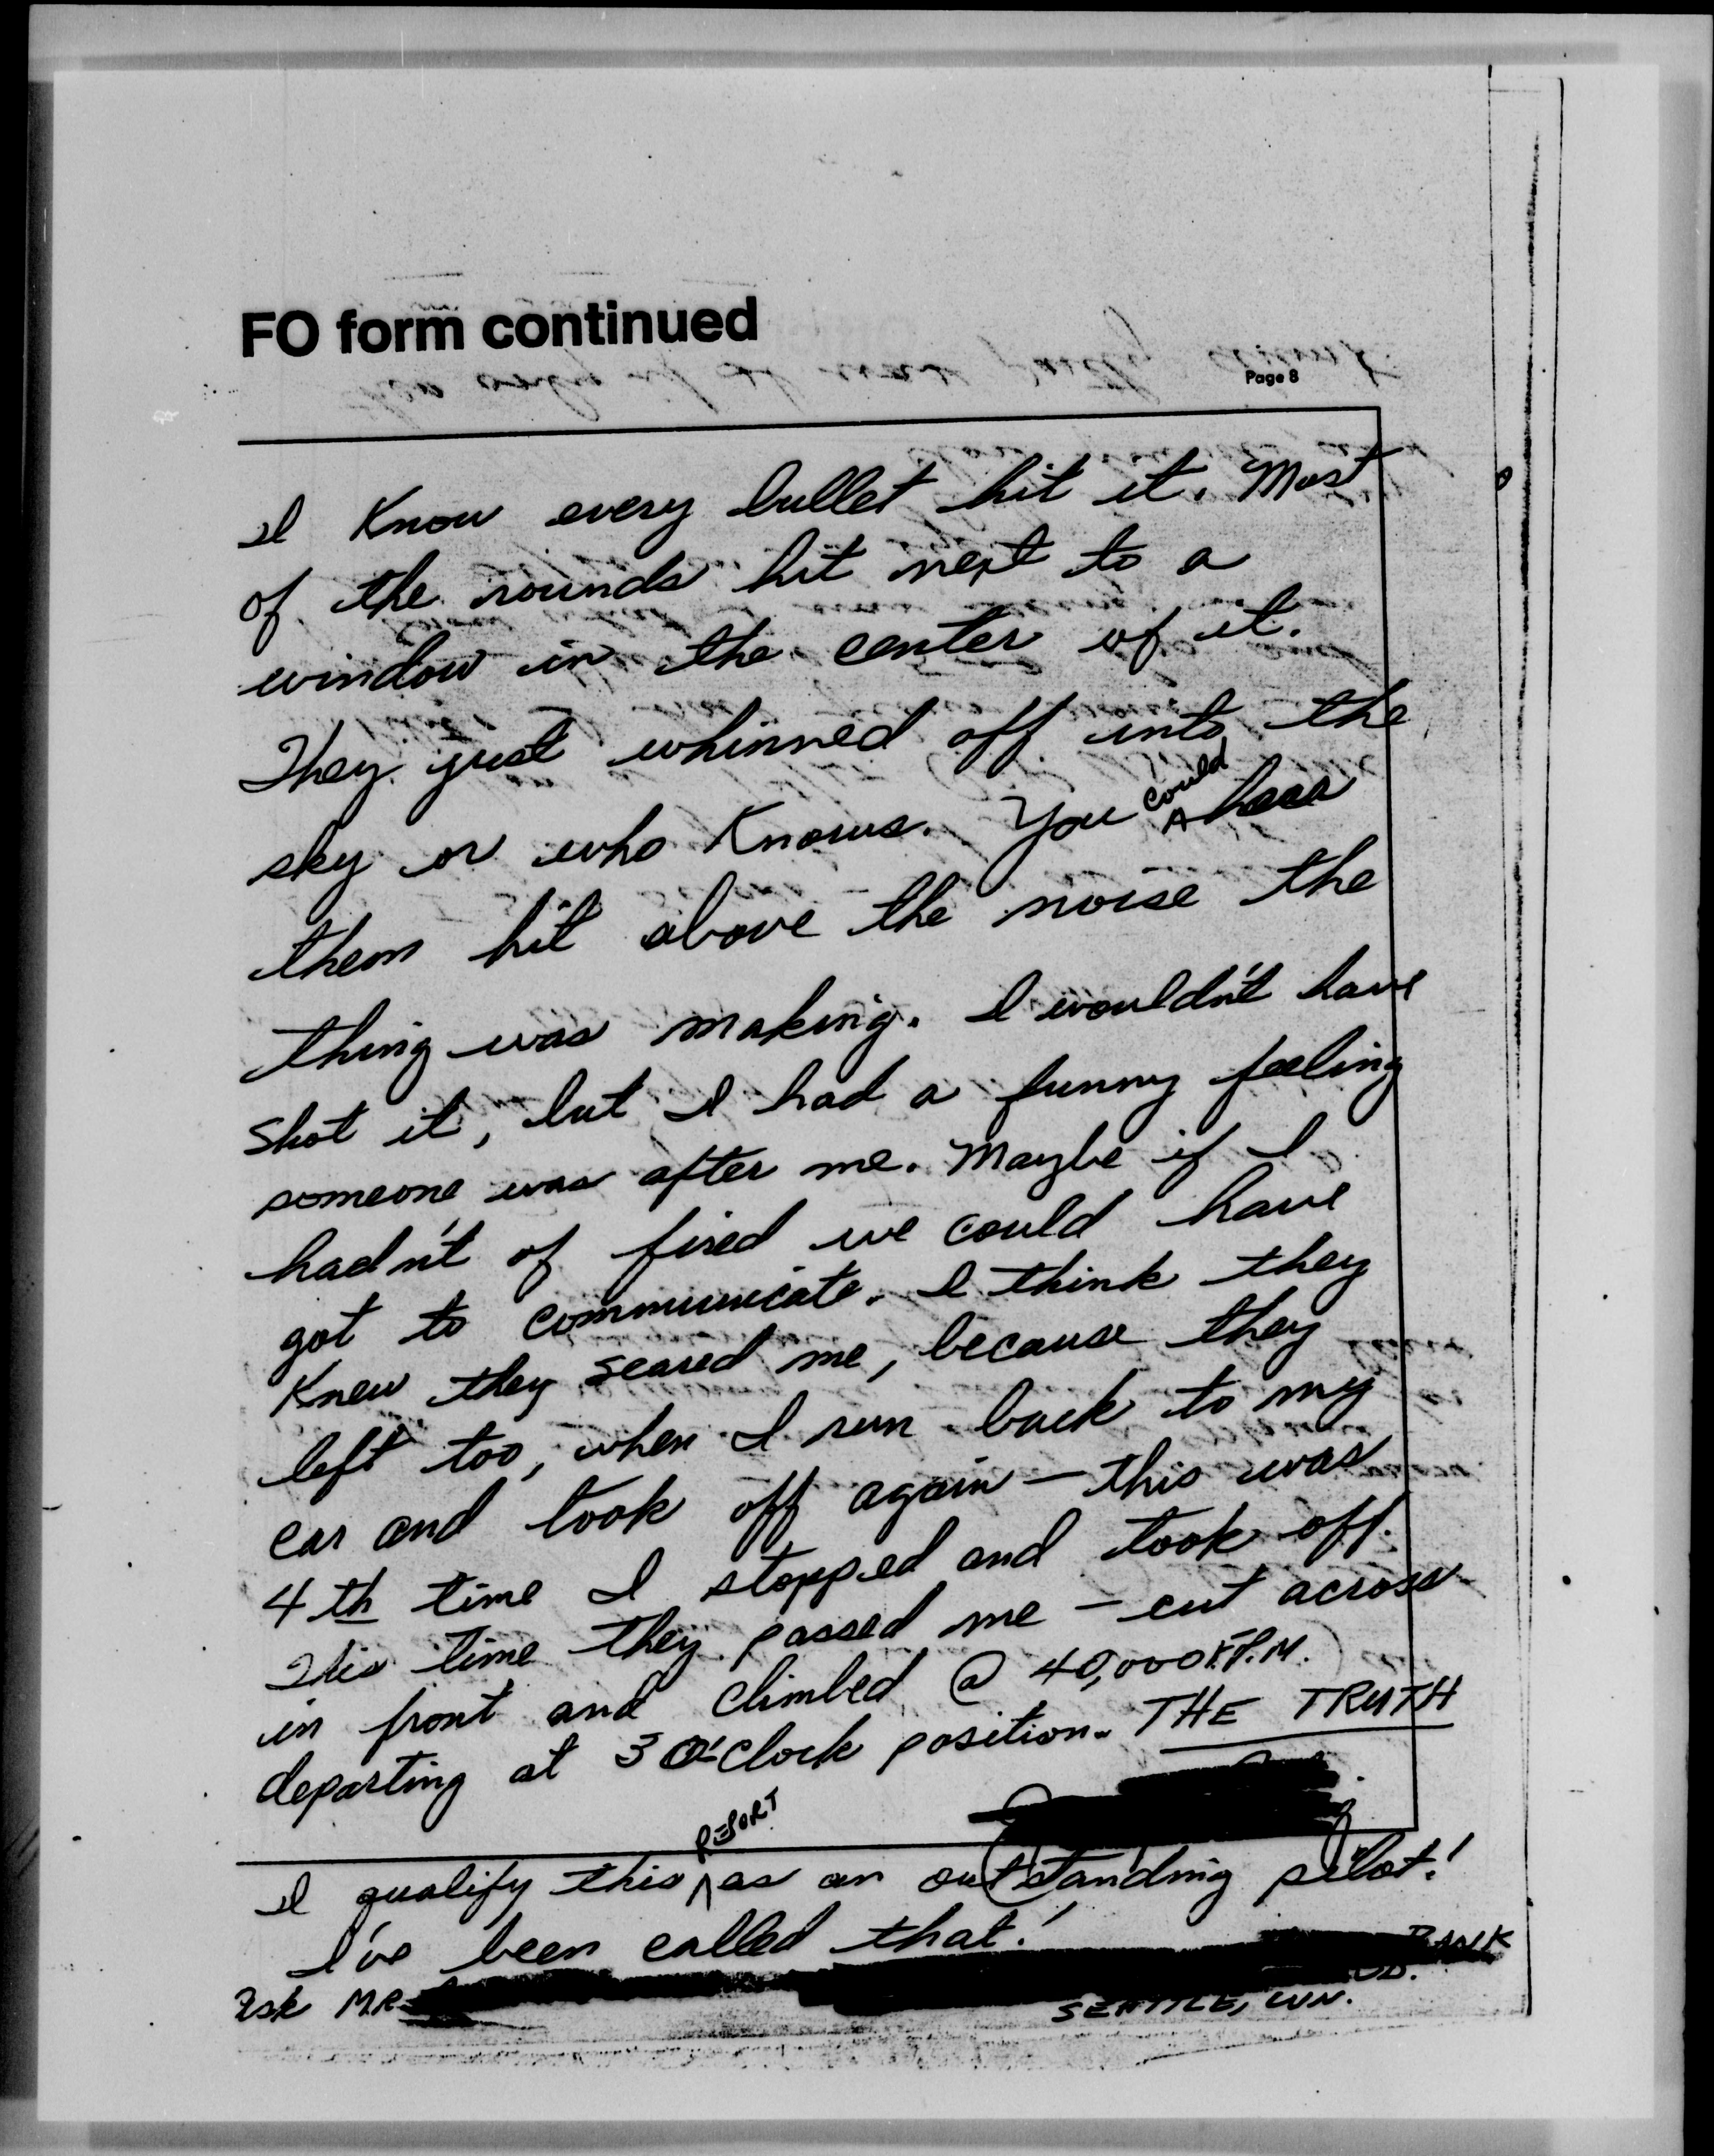 FO form continued
Page 8
I Know every bullet hit it. Most
of the rounds hit next to a
window in the center of it.
They just whinned off into the
sky or who Knows. You could hear
them hit above the noise the
thing was making. I wouldn't have
shot it, but I had a funny feeling
someone was after me. Maybe if I
hadn't of fired we could have
got to communicate. I think they
Knew they scared me, because they
left too, when I run back to my
car and took off again — this was
4th time I stopped and took off.
This time they passed me — cut across
in front and climbed @ 40,000 F.P.M.
departing at 3 O'clock position. THE TRUTH
I qualify this REPORT as an outstanding pilot!
I've been called that!
BANK
Ask MR.
SEATTLE, WN.